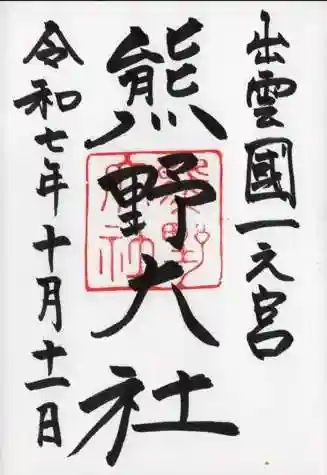 出雲國一之宮
熊野大社
令和七年十月十一日
熊野大社